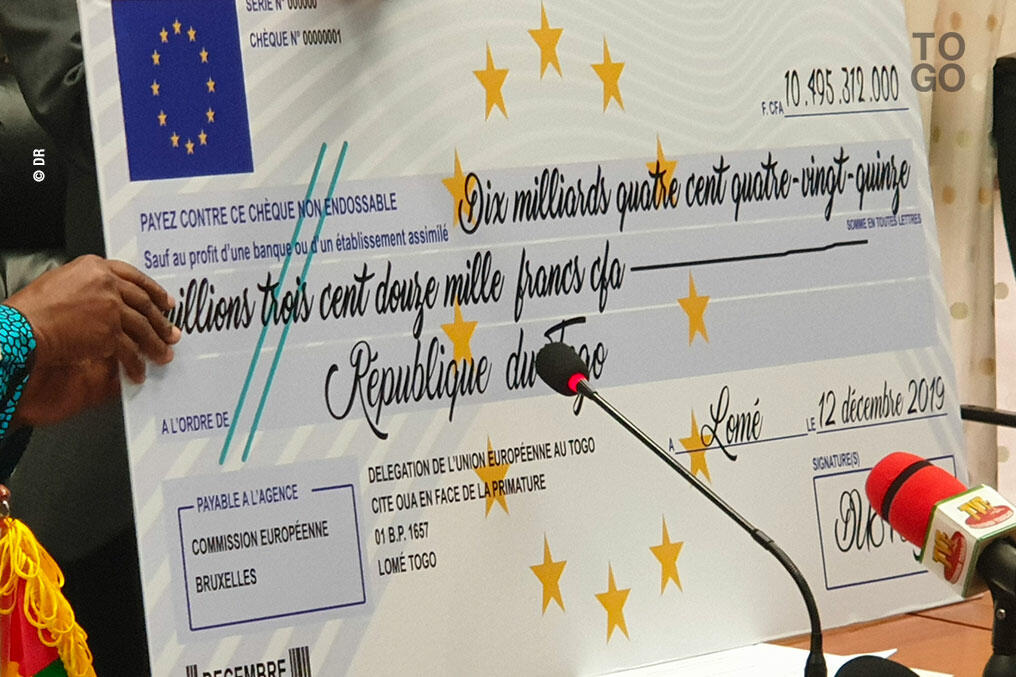 SÉRIE N° 000000
CHÈQUE N° 00000001
TO
GO
© DR
F. CFA 10.495.312.000
PAYEZ CONTRE CE CHÈQUE NON ENDOSSABLE
Sauf au profit d'une banque ou d'un établissement assimilé
Dix milliards quatre cent quatre-vingt-quinze
SOMME EN TOUTES LETTRES
millions trois cent douze mille francs cfa
République du Togo
A L'ORDRE DE
A Lomé LE 12 décembre 2019
PAYABLE A L'AGENCE
COMMISSION EUROPÉENNE
BRUXELLES
DELEGATION DE L'UNION EUROPÉENNE AU TOGO
CITE OUA EN FACE DE LA PRIMATURE
01 B.P. 1657
LOMÉ TOGO
SIGNATURE(S)
DECEMBRE